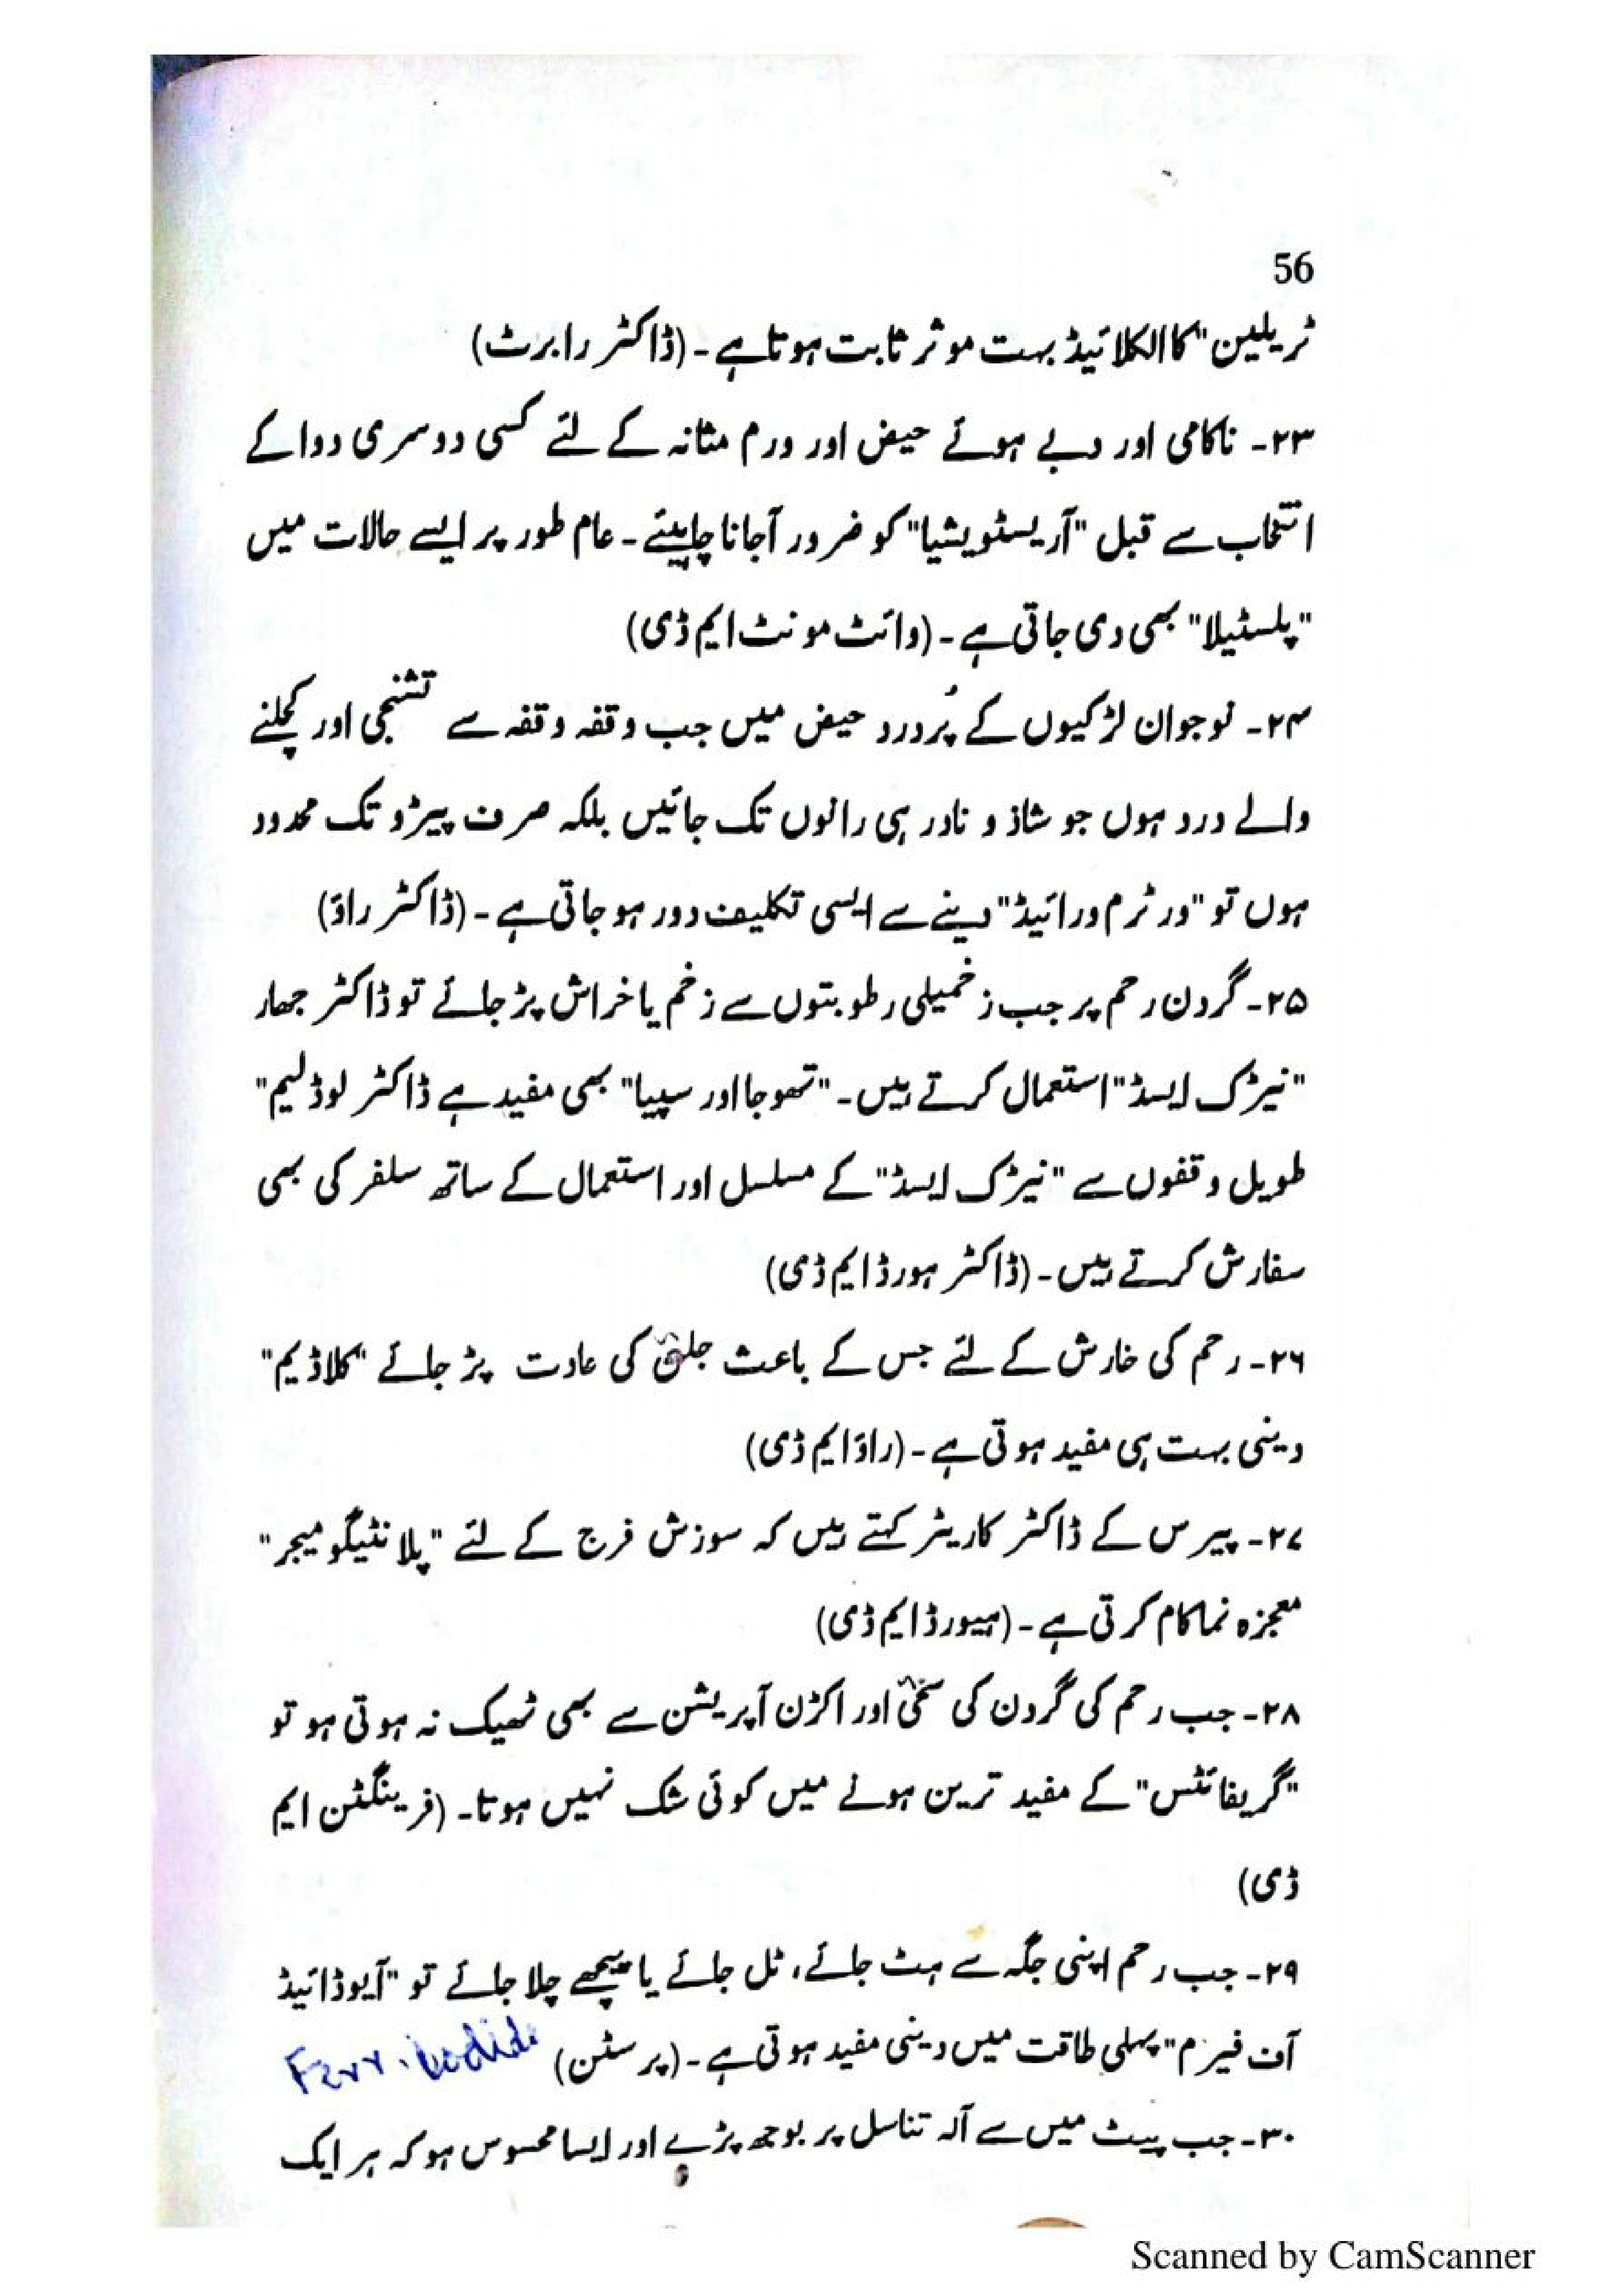 56
ٹریلین" کا الکلائیڈ بہت موثر ثابت ہوتا ہے۔ (ڈاکٹر رابرٹ)
۲۳۔ ناکامی اور دبے ہوئے حیض اور ورم مثانہ کے لئے کسی دوسری دوا کے
انتخاب سے قبل "آریسٹویشیا" کو ضرور آجانا چاہیئے۔ عام طور پر ایسے حالات میں
"پلسٹیلا" بھی دی جاتی ہے۔ (وائٹ مونٹ ایم ڈی)
۲۴۔ نوجوان لڑکیوں کے پُردرد حیض میں جب وقفہ وقفہ سے تشنجی اور کچلنے
والے درد ہوں جو شاذ و نادر ہی رانوں تک جائیں بلکہ صرف پیڑو تک محدود
ہوں تو "ورٹرم ورائیڈ" دینے سے ایسی تکلیف دور ہو جاتی ہے۔ (ڈاکٹر راؤ)
۲۵۔ گردن رحم پر جب زخمیلی رطوبتوں سے زخم یا خراش پڑ جائے تو ڈاکٹر جھار
"نیڑک ایسڈ" استعمال کرتے ہیں۔ "تھوجا اور سپیا" بھی مفید ہے ڈاکٹر لوڈلیم"
طویل وقفوں سے "نیڑک ایسڈ" کے مسلسل اور استعمال کے ساتھ سلفر کی بھی
سفارش کرتے ہیں۔ (ڈاکٹر ہورڈ ایم ڈی)
۲۶۔ رحم کی خارش کے لئے جس کے باعث جلق کی عادت پڑ جائے "کلاڈیم"
دینی بہت ہی مفید ہوتی ہے۔ (راؤ ایم ڈی)
۲۷۔ پیرس کے ڈاکٹر کاریٹر کہتے ہیں کہ سوزش فرج کے لئے "پلانٹیگو میجر"
معجزہ نما کام کرتی ہے۔ (ہیورڈ ایم ڈی)
۲۸۔ جب رحم کی گردن کی سختی اور اکڑن آپریشن سے بھی ٹھیک نہ ہوتی ہو تو
"گریفائٹس" کے مفید ترین ہونے میں کوئی شک نہیں ہوتا۔ (فرینگٹن ایم
ڈی)
۲۹۔ جب رحم اپنی جگہ سے ہٹ جائے، ٹل جائے یا پیچھے چلا جائے تو "آیوڈائیڈ
آف فیرم" پہلی طاقت میں دینی مفید ہوتی ہے۔ (پرسٹن) Ferr. Iodide
۳۰۔ جب پیٹ میں سے آلہ تناسل پر بوجھ پڑے اور ایسا محسوس ہو کہ ہر ایک
Scanned by CamScanner